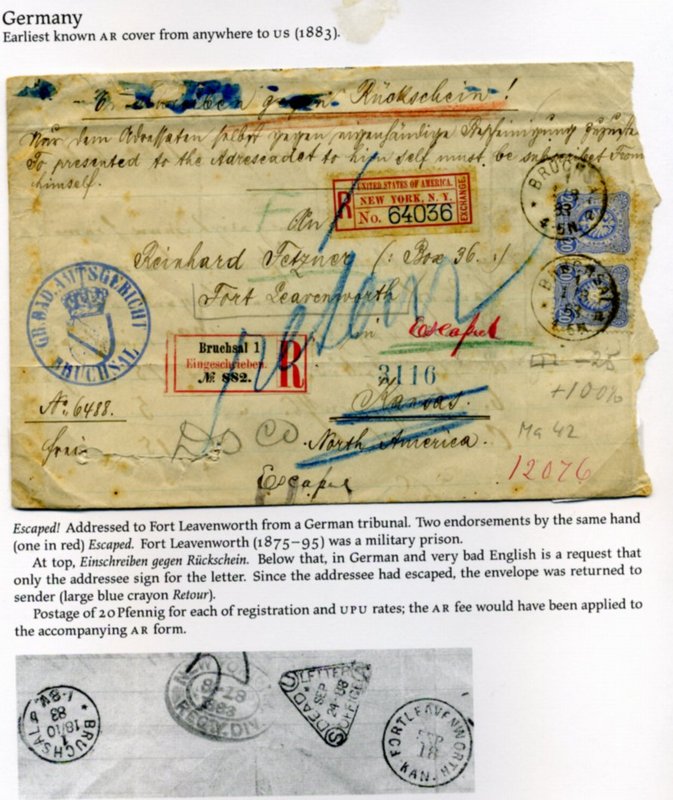 Germany
Earliest known AR cover from anywhere to US (1883).
gegen Rückschein!
Nur dem Adressaten selbst gegen eigenhändige Bescheinigung
To presented to the Adrescadet to him self must, be subscribet From
himself.
UNITED STATES OF AMERICA.
R NEW YORK, N.Y.
No. 64036
EXCHANGE
BRUCHSAL
83
An
Reinhard Fetzner (: Box 36. :)
Fort Leavenworth
retour
in
Escaped
GR. BAD. AMTSGERICHT
BRUCHSAL
BRUCHSAL
Bruchsal 1
Eingeschrieben.
№ 882.
R
3116
Kansas.
25
+100%
No. 6488.
frei
D S CO
North America
Ma 42
12076
Escaped
Escaped! Addressed to Fort Leavenworth from a German tribunal. Two endorsements by the same hand
(one in red) Escaped. Fort Leavenworth (1875–95) was a military prison.
At top, Einschreiben gegen Rückschein. Below that, in German and very bad English is a request that
only the addressee sign for the letter. Since the addressee had escaped, the envelope was returned to
sender (large blue crayon Retour).
Postage of 20 Pfennig for each of registration and UPU rates; the AR fee would have been applied to
the accompanying AR form.
BRUCHSAL
1
18/10
83
1-8V.
REG'Y DIV
DEAD LETTER OFFICE
SEP
24
FORT LEAVENWORTH
SEP
18
KAN